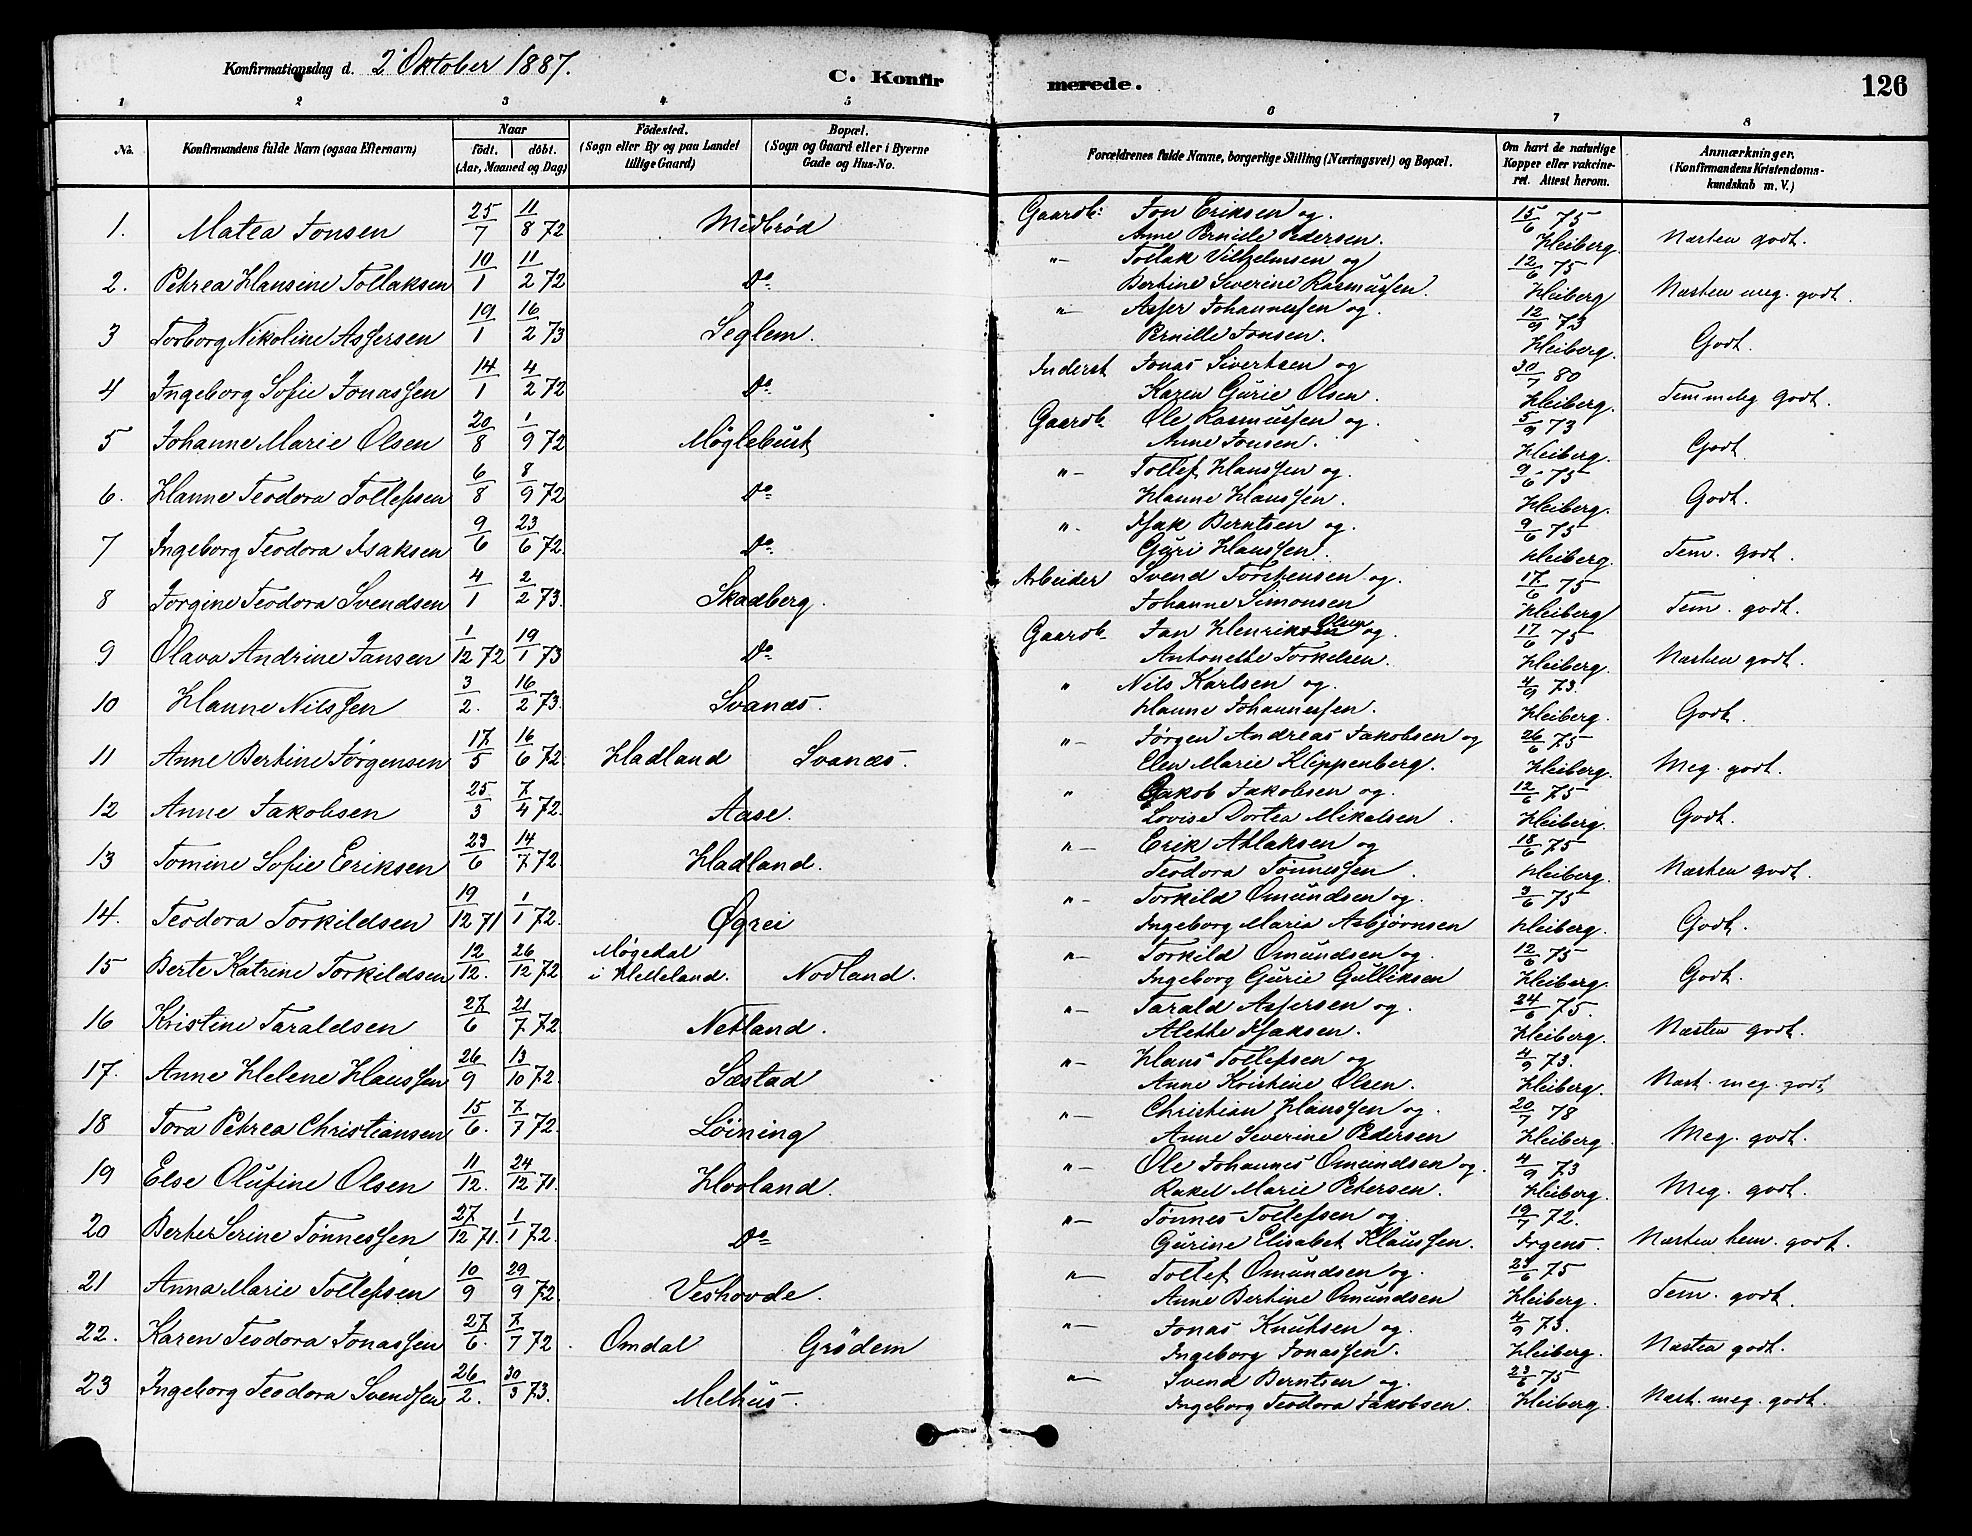 Konfirmationsdag d. 2' Oktober 1887. C. Konfirmerede. 126
1 2 3 4 5 6 7 8
No. Konfirmandens fulde Navn (ogsaa Efternavn) Naar födt. döbt. (Aar, Maaned og Dag) Födested. (Sogn eller By og paa Landet tillige Gaard) Bopæl. (Sogn og Gaard eller i Byerne Gade og Hus-No. Forældrenes fulde Navne, borgerlige Stilling (Næringsvei) og Bopæl. Om havt de naturlige Kopper eller vakcineret. Attest herom. Anmærkninger. (Konfirmandens Kristendomskundskab m. V.)
1. Matea Jonsen 25/7 11/8 72 Midbrød Gaardb: Jon Eriksen og 15/6 75
Anne Pernille Pedersen. Heiberg. Næsten godt.
2. Petrea Hansine Tollaksen 10/1 11/2 72 Do "- Tollak Vilhelmsen og 12/6 75
Bertine Severine Rasmussen. Heiberg Næsten meg. godt.
3 Torborg Nikoline Assersen 19/1 16/2 73 Seglem. "- Asser Johannessen og. 12/9 73
Pernille Jonsen. Heiberg. Godt.
4 Ingeborg Sofie Jonassen 14/1 4/2 72 Do Inderst Jonas Sivertsen og 30/7 80
Karen Gurie Olsen. Heiberg. Temmelig godt.
5 Johanne Marie Olsen 20/8 1/9 72 Møglebust Gaardb. Ole Rasmussen og. 5/9 73
Anne Jonsen. Heiberg. Godt.
6. Hanne Teodora Tollefsen 6/8 8/9 72 Do "- Tollef Hanssen og. 9/6 75
Hanne Hanssen. Heiberg. Godt.
7 Ingeborg Teodora Isaksen 9/6 23/6 72. Do "- Isak Berntsen og. 9/6 75
Guri Hanssen. Heiberg. Tem. godt.
8 Jorgine Teodora Svendsen 4/1 2/2 73. Skadberg. Arbeider Svend Torstensen og. 17/6 75
Johanne Simonsen Heiberg Tem. godt.
9 Olava Andrine Jansen 1/12 72 19/1 73 Do Gaardb. Jan Henriksen Olsen og. 17/6 75
Antonette Torkelsen. Heiberg. Næsten godt.
10 Hanne Nilssen 3/2. 16/2 73. Svanæs. " Nils Karlsen og. 4/9 73.
Hanne Johannessen. Heiberg. Godt.
11 Anne Bertine Jørgensen 17/5 16/6 72. Hadland Svanæs. "- Jørgen Andreas Jakobsen og 26/6 75
Elen Marie Klippenberg. Heiberg. Meg. godt.
12 Anne Jakobsen 25/3 7/4 72. Aase. " Jakob Jakobsen og. 12/6 75
Lovise Dortea Mikalsen. Heiberg. Godt.
13 Tomine Sofie Eriksen 23/6 14/7 72. Hadland. "- Erik Atlaksen og 18/6 75
Teodora Tønnessen. Heiberg. Næsten godt.
14. Teodora Torkildsen 19/12 71 1/1 72. Øgrei "- Torkild Omundsen og. 3/6 75
Ingeborg Maria Asbjørnsen Heiberg. Godt.
15 Berte Katrine Torkildsen 12/12. 26/12 72 Møgedal i Helleland. Nodland. "- Torkild Omundsen og. 12/6 75
Ingeborg Gurie Gulliksen Heiberg. Godt.
16 Kristine Taraldsen 27/6 21/7 72 Netland. "- Tarald Assersen og. 24/6 75.
Alette Isaksen. Heiberg. Næsten godt.
17. Anne Helene Hanssen 26/9 13/10 72. Sæstad "- Hans Tollefsen og 4/9 73.
Anne Kristine Olsen. Heiberg. Næst. meg. godt,
18 Tora Petrea Christiansen 15/6. 7/7 72. Löining "- Christian Hanssen og. 20/7 78
Anne Severine Pedersen Heiberg. Meg. godt.
19 Else Olufine Olsen 11/12. 24/12 71. Hovland. "- Ole Johannes Omundsen og. 4/9 73
Rakel Marie Petersen. Heiberg. Meg. godt.
20 Berte Serine Tønnessen 27/12 71. 1/1 72. Do "- Tønnes Tollefsen og 19/7 72.
Gurine Elisabet Klaussen. Irgens. Næsten tem. godt.
21 Anna Marie Tollefsen 10/9 29/9 72. Veshovde. "- Tollef Omundsen og. 23/6 75
Anne Bertine Omundsen Heiberg. Tem. godt.
22. Karen Teodora Jonassen 27/6. 7/7 72. Omdal Grödem "- Jonas Knutsen og. 4/9 73.
Ingeborg Jonassen. Heiberg. Næsten godt.
23 Ingeborg Teodora Svendsen 26/2. 30/3 73. Melhus. "- Svend Berntsen og. 23/6 75
Ingeborg Teodora Jakobsen. Heiberg. Næst. meg. godt.